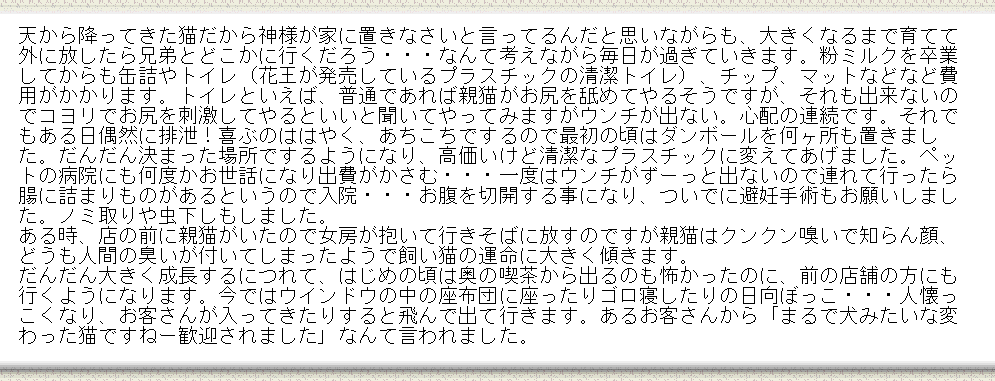 天から降ってきた猫だから神様が家に置きなさいと言ってるんだと思いながらも、大きくなるまで育てて
外に放したら兄弟とどこかに行くだろう・・・なんて考えながら毎日が過ぎていきます。粉ミルクを卒業
してからも缶詰やトイレ（花王が発売しているプラスチックの清潔トイレ）、チップ、マットなどなど費
用がかかります。トイレといえば、普通であれば親猫がお尻を舐めてやるそうですが、それも出来ないの
でコヨリでお尻を刺激してやるといいと聞いてやってみますがウンチが出ない。心配の連続です。それで
もある日偶然に排泄！喜ぶのははやく、あちこちでするので最初の頃はダンボールを何ヶ所も置きまし
た。だんだん決まった場所でするようになり、高価いけど清潔なプラスチックに変えてあげました。ペッ
トの病院にも何度かお世話になり出費がかさむ・・・一度はウンチがずーっと出ないので連れて行ったら
腸に詰まりものがあるというので入院・・・お腹を切開する事になり、ついでに避妊手術もお願いしまし
た。ノミ取りや虫下しもしました。
ある時、店の前に親猫がいたので女房が抱いて行きそばに放すのですが親猫はクンクン嗅いで知らん顔、
どうも人間の臭いが付いてしまったようで飼い猫の運命に大きく傾きます。
だんだん大きく成長するにつれて、はじめの頃は奥の喫茶から出るのも怖かったのに、前の店舗の方にも
行くようになります。今ではウインドウの中の座布団に座ったりゴロ寝したりの日向ぼっこ・・・人懐っ
こくなり、お客さんが入ってきたりすると飛んで出て行きます。あるお客さんから「まるで犬みたいな変
わった猫ですねー歓迎されました」なんて言われました。